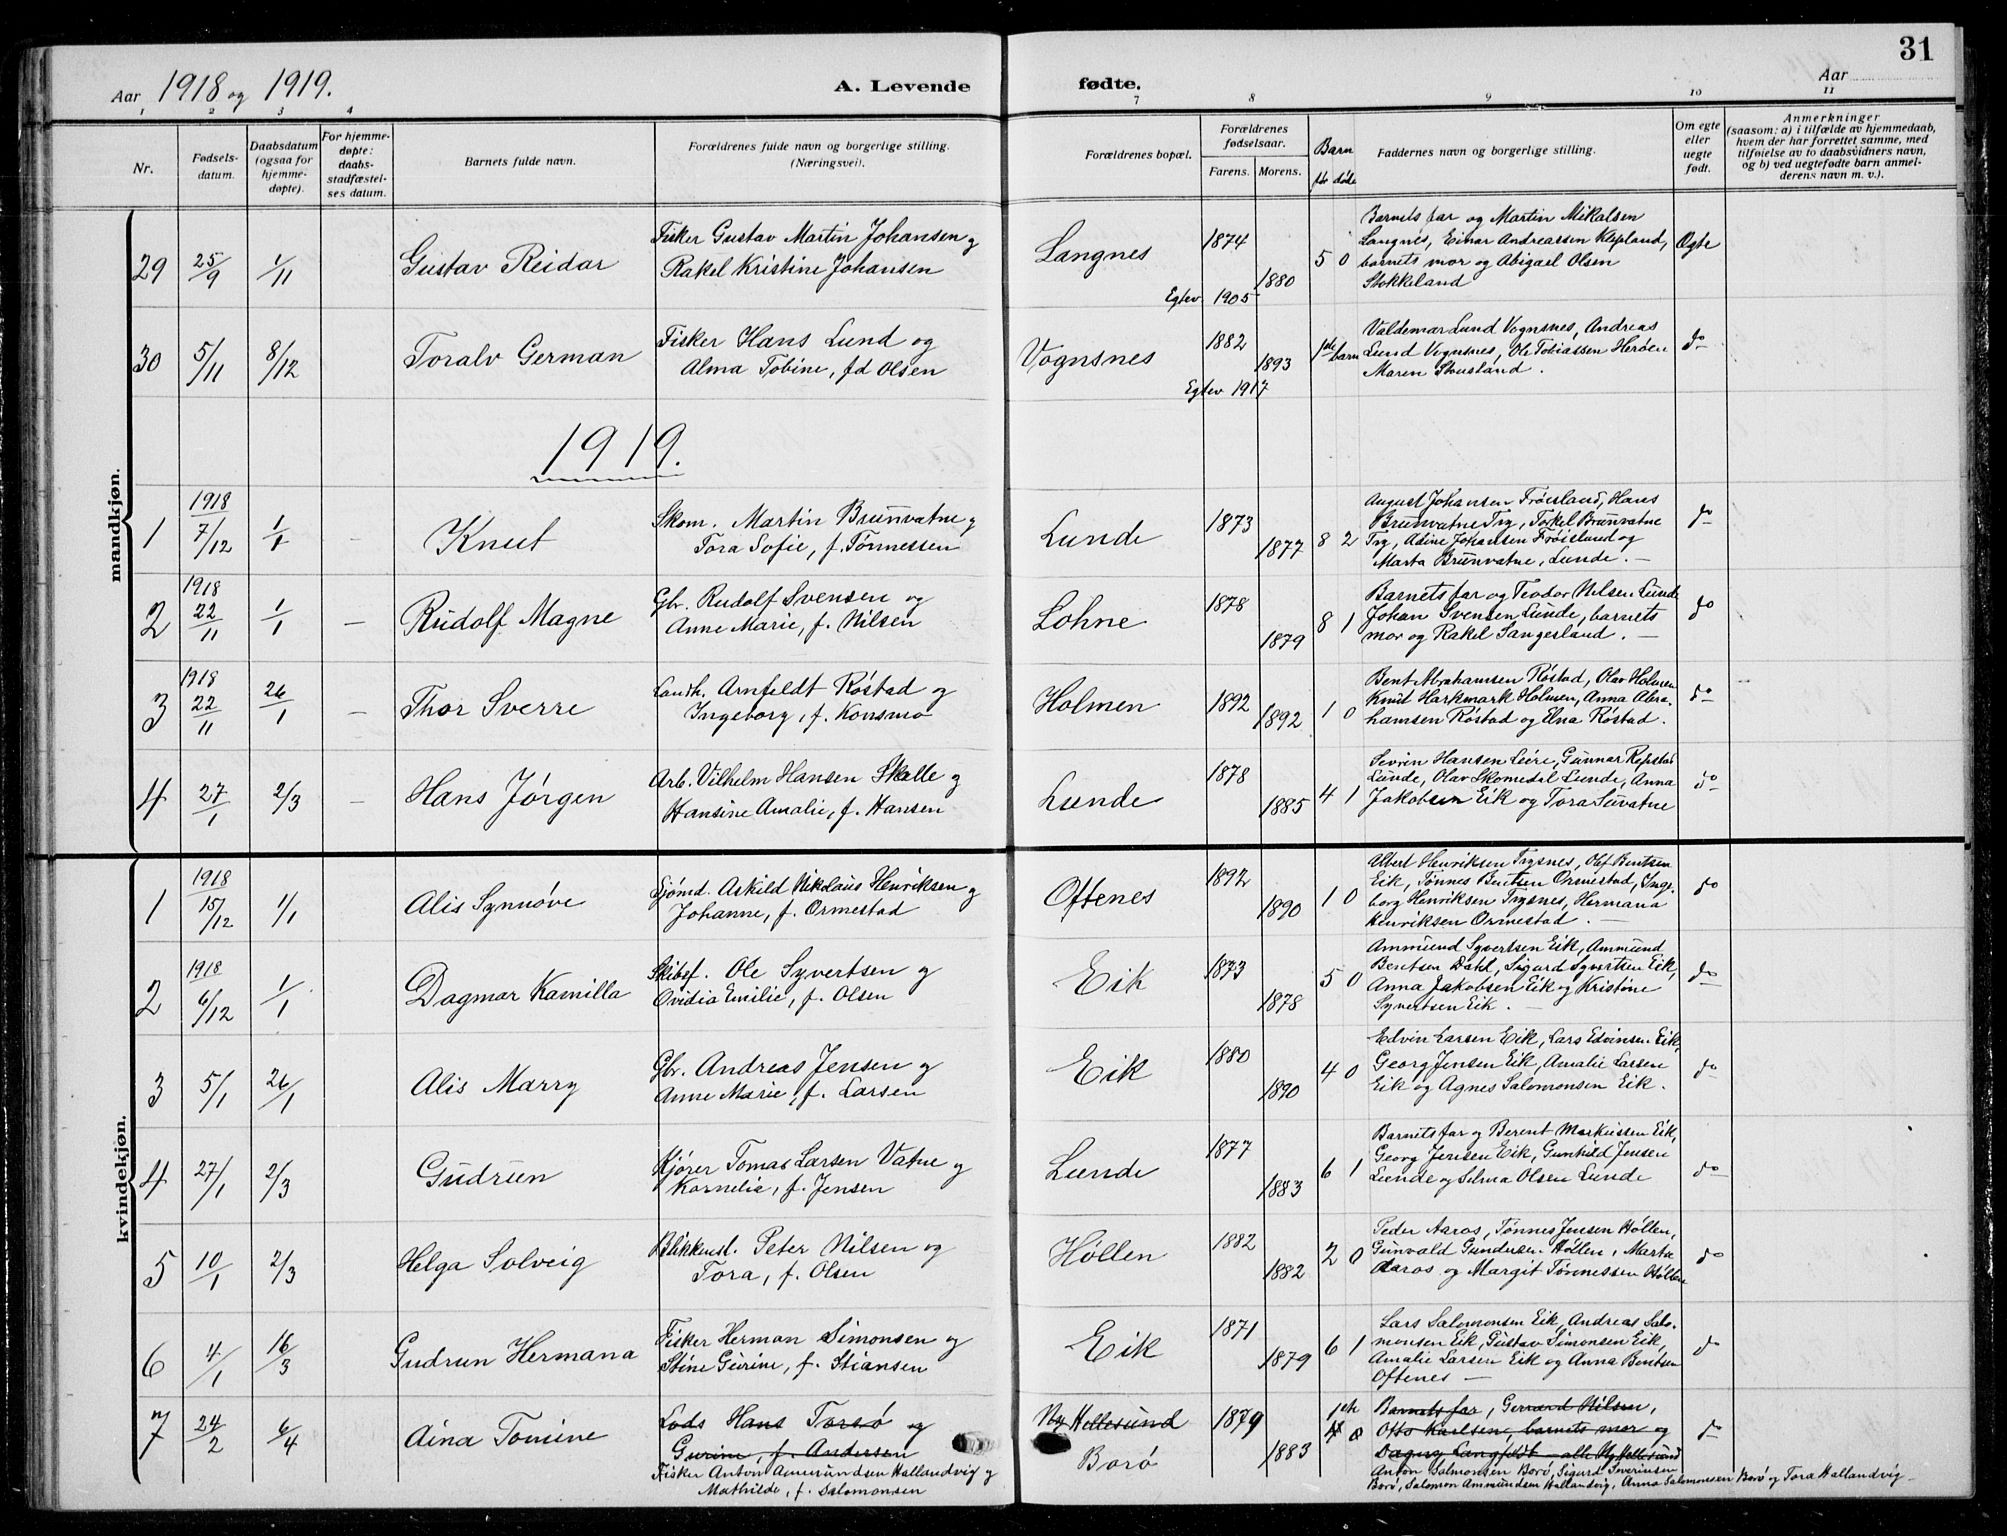 31
Aar 1918 og 1919.
A. Levende fødte.
Aar
1 2 3 4 7 8 9 10 11
Nr.
Fødsels-
datum.
Daabsdatum
(ogsaa for
hjemme-
døpte).
For hjemme-
døpte:
daabs-
stadfæstel-
ses datum.
Barnets fulde navn.
Forældrenes fulde navn og borgerlige stilling.
(Næringsvei).
Forældrenes bopæl.
Forældrenes
fødselsaar.
Farens. Morens.
Barn
før døde
Faddernes navn og borgerlige stilling.
Om egte
eller
uegte
født.
Anmerkninger
(saasom: a) i tilfælde av hjemmedaab,
hvem der har forrettet samme, med
tilføielse av to daabsvidners navn,
og b) ved uegtefødte barn anmel-
derens navn m. v.).
mandkjøn.
29 25/9 1/11 Gustav Reidar
Fisker Gustav Martin Johansen og
Rakel Kristine Johansen
Langnes 1874 1880 5 0
Egtev. 1905
Barnets far og Martin Mikalsen
Langnes, Einar Andreassen Klepland,
barnets mor og Abigael Olsen
Stokkeland
Egte
30 5/11 8/12 Toralv German
Fisker Hans Lund og
Alma Tobine, fd Olsen
Vognsnes 1882 1893 1ste barn
Egtev 1917
Valdemar Lund Vognsnes, Andreas
Lund Vognsnes, Ole Tobiassen Herøen
Maren Skusland.
do
1919.
1 1918 7/12 1/1 – Knut
Skom. Martin Brunvatne og
Tora Sofie, f. Tønnessen
Lunde 1873 1877 8 2
August Johansen Frøisland, Hans
Brunvatne Try, Torkel Brunvatne
Try, Adine Johansen Frøisland og
Marta Brunvatne, Lunde. –
do
2 1918 22/11 1/1 – Rudolf Magne
Gbr. Rudolf Svensen og
Anne Marie, f. Nilsen
Lohne 1878 1879 8 1
Barnets far og Teodor Nilsen Lunde
Johan Svensen Lunde, barnets
mor og Rakel Sangesland. –
do
3 1918 22/11 26/1 – Thor Sverre
Landh. Arnfeldt Røstad og
Ingeborg, f. Konsmo
Holmen 1892 1892 1 0
Bent Abrahamsen Røstad, Olav Holmen
Knut Harkmark Holmen, Anna Abra-
hamsen Røstad og Elna Røstad.
do
4 27/1 2/3 – Hans Jørgen
Arb. Vilhelm Hansen Skalle og
Hansine Amalie, f. Hansen
Lunde 1878 1885 4 1
Sevrin Hansen Leire, Gunnar Repstad
Lunde, Olav Skomedal Lunde, Anna
Jakobsen Eik og Tora Suvatne
do
kvindekjøn.
1 1918 15/12 1/1 Alis Synnøve
Sjømd. Askild Nikolaus Henriksen og
Johanne, f. Ormestad
Oftenes 1892 1890 1 0
Albert Henriksen Trysnes, Olef Bentsen
Eik, Tønnes Bentsen Ormestad, Inge-
borg Henriksen Trysnes, Hermana
Henriksen Ormestad. –
do
2 1918 6/12 1/1 Dagmar Kamilla
Skibsf. Ole Syvertsen og
Ovidia Emilie, f. Olsen
Eik 1873 1878 5 0
Ammund Syvertsen Eik, Ammund
Bentsen Dahl, Sigurd Syvertsen Eik,
Anna Jakobsen Eik og Kristine
Syvertsen Eik. –
do
3 5/1 26/1 Alis Marry
Gbr. Andreas Jensen og
Anne Marie, f. Larsen
Eik 1880 1890 4 0
Edvin Larsen Eik, Lars Edvinsen Eik,
Georg Jensen Eik, Amalie Larsen
Eik og Agnes Salomonsen Eik.
do
4 27/1 2/3 Gudrun
Kjører Tomas Larsen Vatne og
Kornelie, f. Jensen
Lunde 1877 1883 6 1
Barnets far og Berent Markussen Eik,
Georg Jensen Eik, Gunhild Jensen
Lunde og Selma Olsen Lunde
do
5 10/1 2/3 Helga Solveig
Blikkensl. Peter Nilsen og
Tora, f. Olsen
Høllen 1882 1882 2 0
Peder Aaros, Tønnes Jensen Høllen,
Gunvald Gundersen Høllen, Marta
Aaros og Margit Tønnessen Høllen
do
6 4/1 16/3 Gudrun Hermana
Fisker Herman Simonsen og
Stine Gurine, f. Stiansen
Eik 1871 1879 6 1
Lars Salomonsen Eik, Andreas Salo-
monsen Eik, Gustav Simonsen Eik,
Amalie Larsen Eik og Anna Bentsen
Oftenes –
do
7 24/2 6/4 Aina Tomine
Lods Hans Torsø og
Gurine, f. Andersen
Fisker Anton Amundsen Hallandvig og
Mathilde, f. Salomonsen
Ny Hellesund
Borø
1879 1883
Barnets far, Gerrard Nilsen,
Otto Karlsen, barnets mor og
Dagny Langfeldt alle Ny Hellesund
Anton Salmonsen Borø, Sigurd Severinsen
Borø, Salomon Ammundsen Hallandvig, Anna Salomonsen Borø og Tora Hallandvig –
do